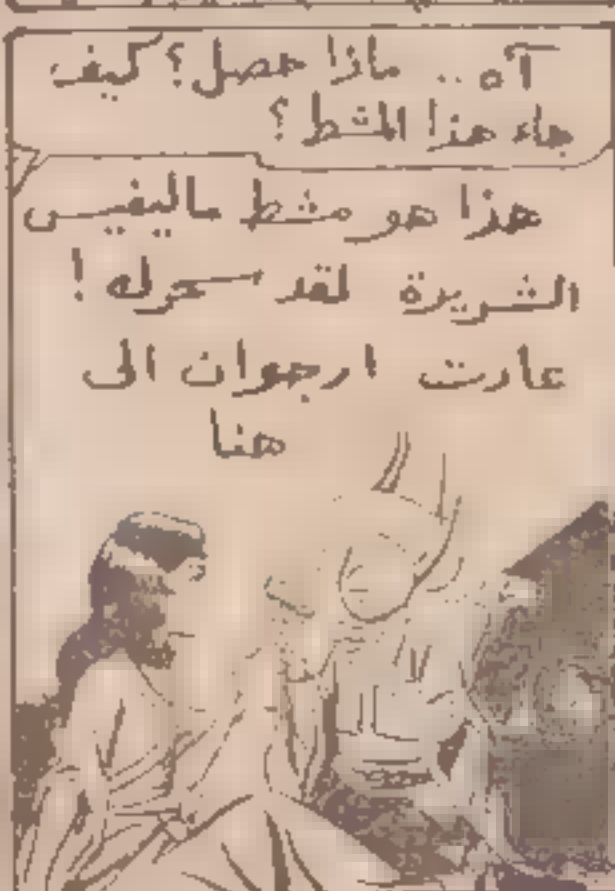 آه .. ماذا حصل؟ كيف
جاء هذا المشط؟
هذا هو مشط ماليفيس
الشريرة لقد سحرك!
عادت ارجوان الى
هنا